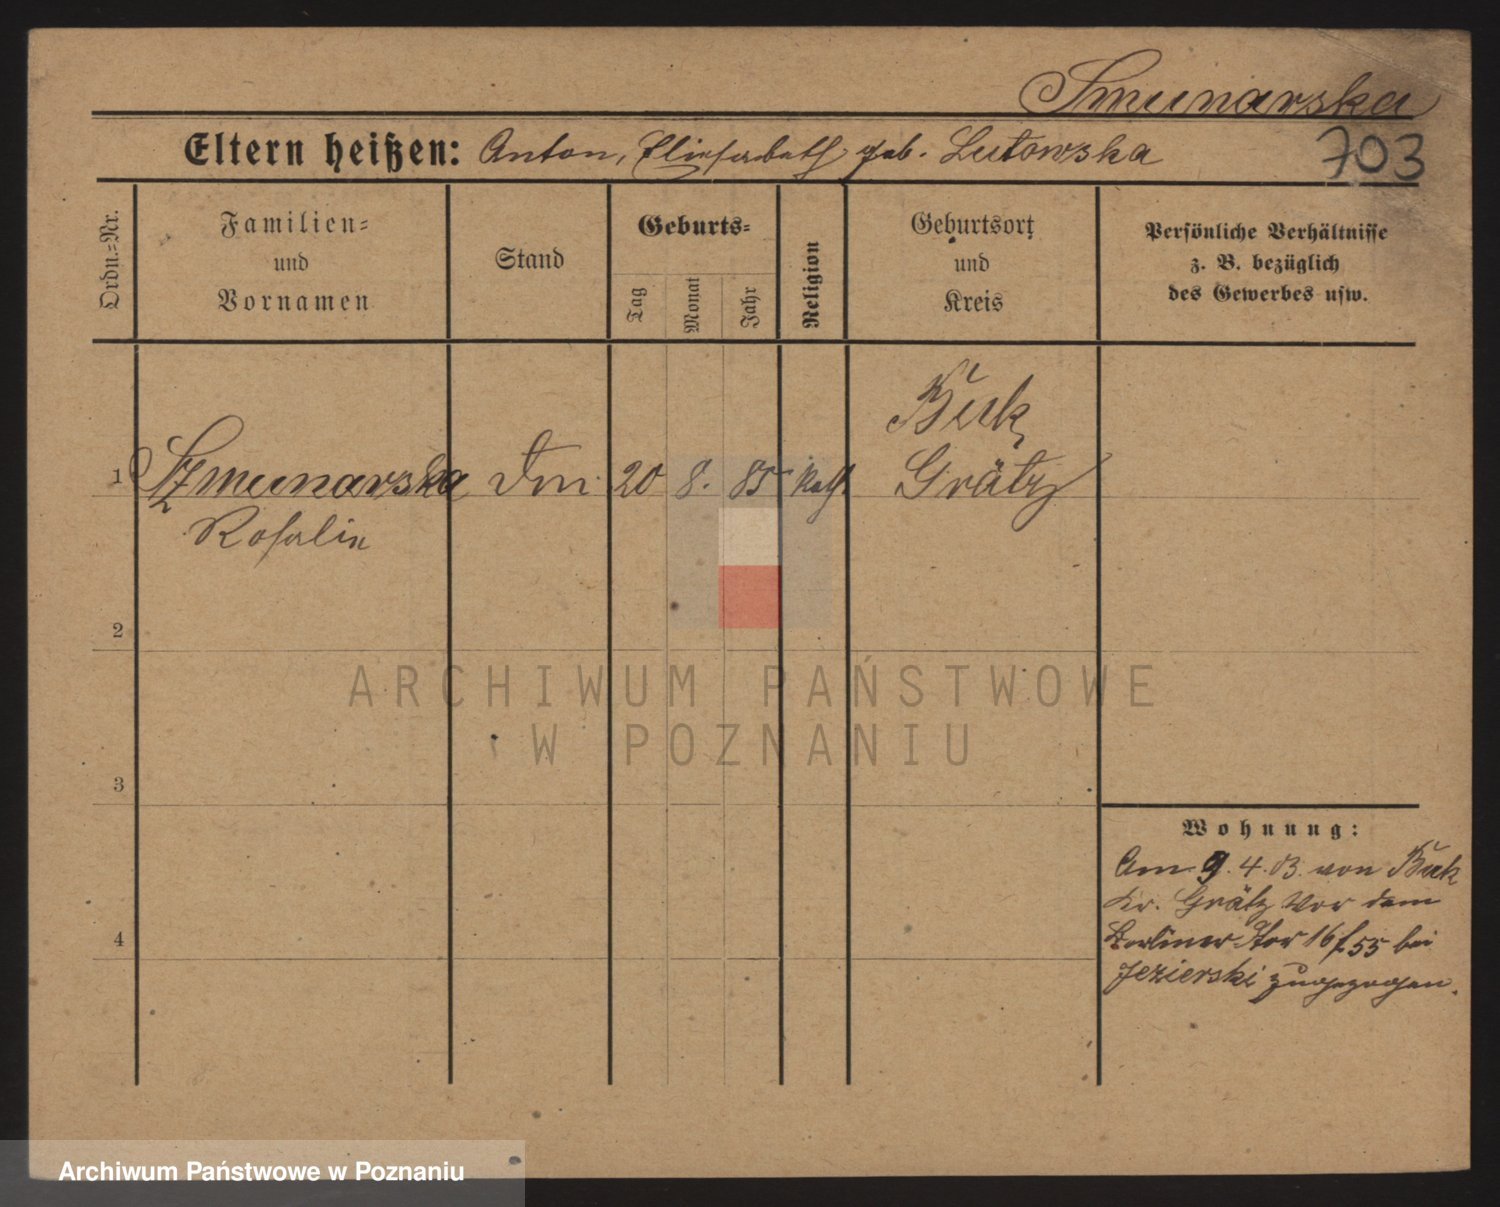 Smunarska
703
Eltern heißen: Anton, Elisabeth geb. Lutowska
Ordn.=Nr.
Familien=
und
Vornamen
Stand
Geburts=
Tag
Monat
Jahr
Religion
Geburtsort
und
Kreis
Persönliche Verhältnisse
z. B. bezüglich
des Gewerbes usw.
Buk
1 Szmunarska 20 8. 85 kath Grätz
Rosalie
2
ARCHIWUM PAŃSTWOWE
W POZNANIU
3
Wohnung:
Am 9. 4. 03. von Buk
Kr. Grätz Vor dem
4
Berliner Tor 16 f. 55 bei
Jezierski zugezogen.
Archiwum Państwowe w Poznaniu